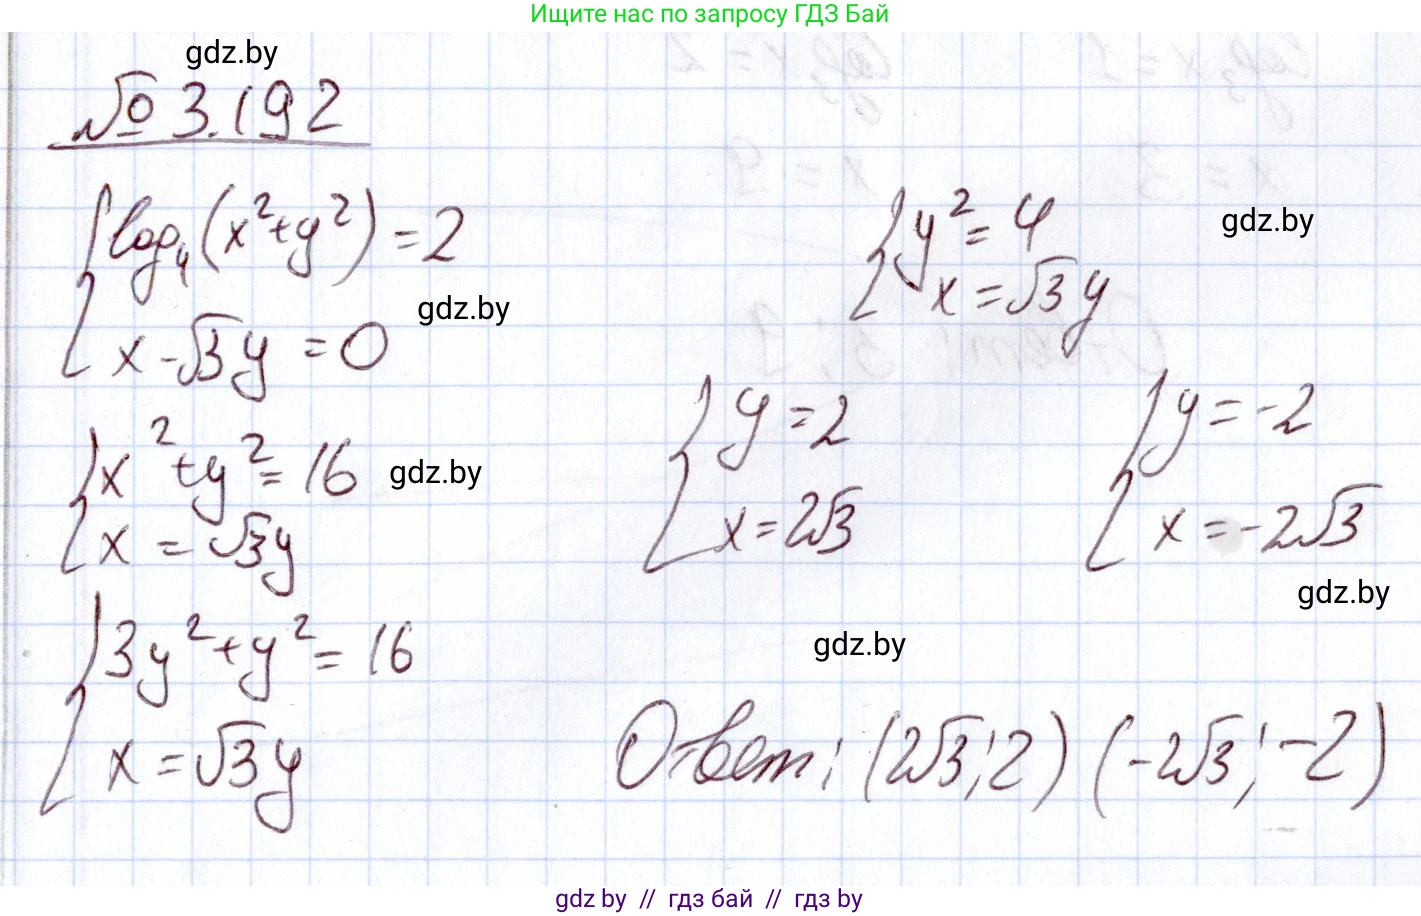 Ищите нас по запросу ГДЗ Бай
gdz.by
№ 3.192
log₄(x²+y²) = 2
gdz.by
x-√3y = 0
x²+y² = 16
gdz.by
x = √3y
3y²+y² = 16
x = √3y
y² = 4
gdz.by
x = √3y
y = 2
x = 2√3
y = -2
x = -2√3
gdz.by
gdz.by
Ответ: (2√3; 2) (-2√3; -2)
gdz.by // гдз бай // гдз by